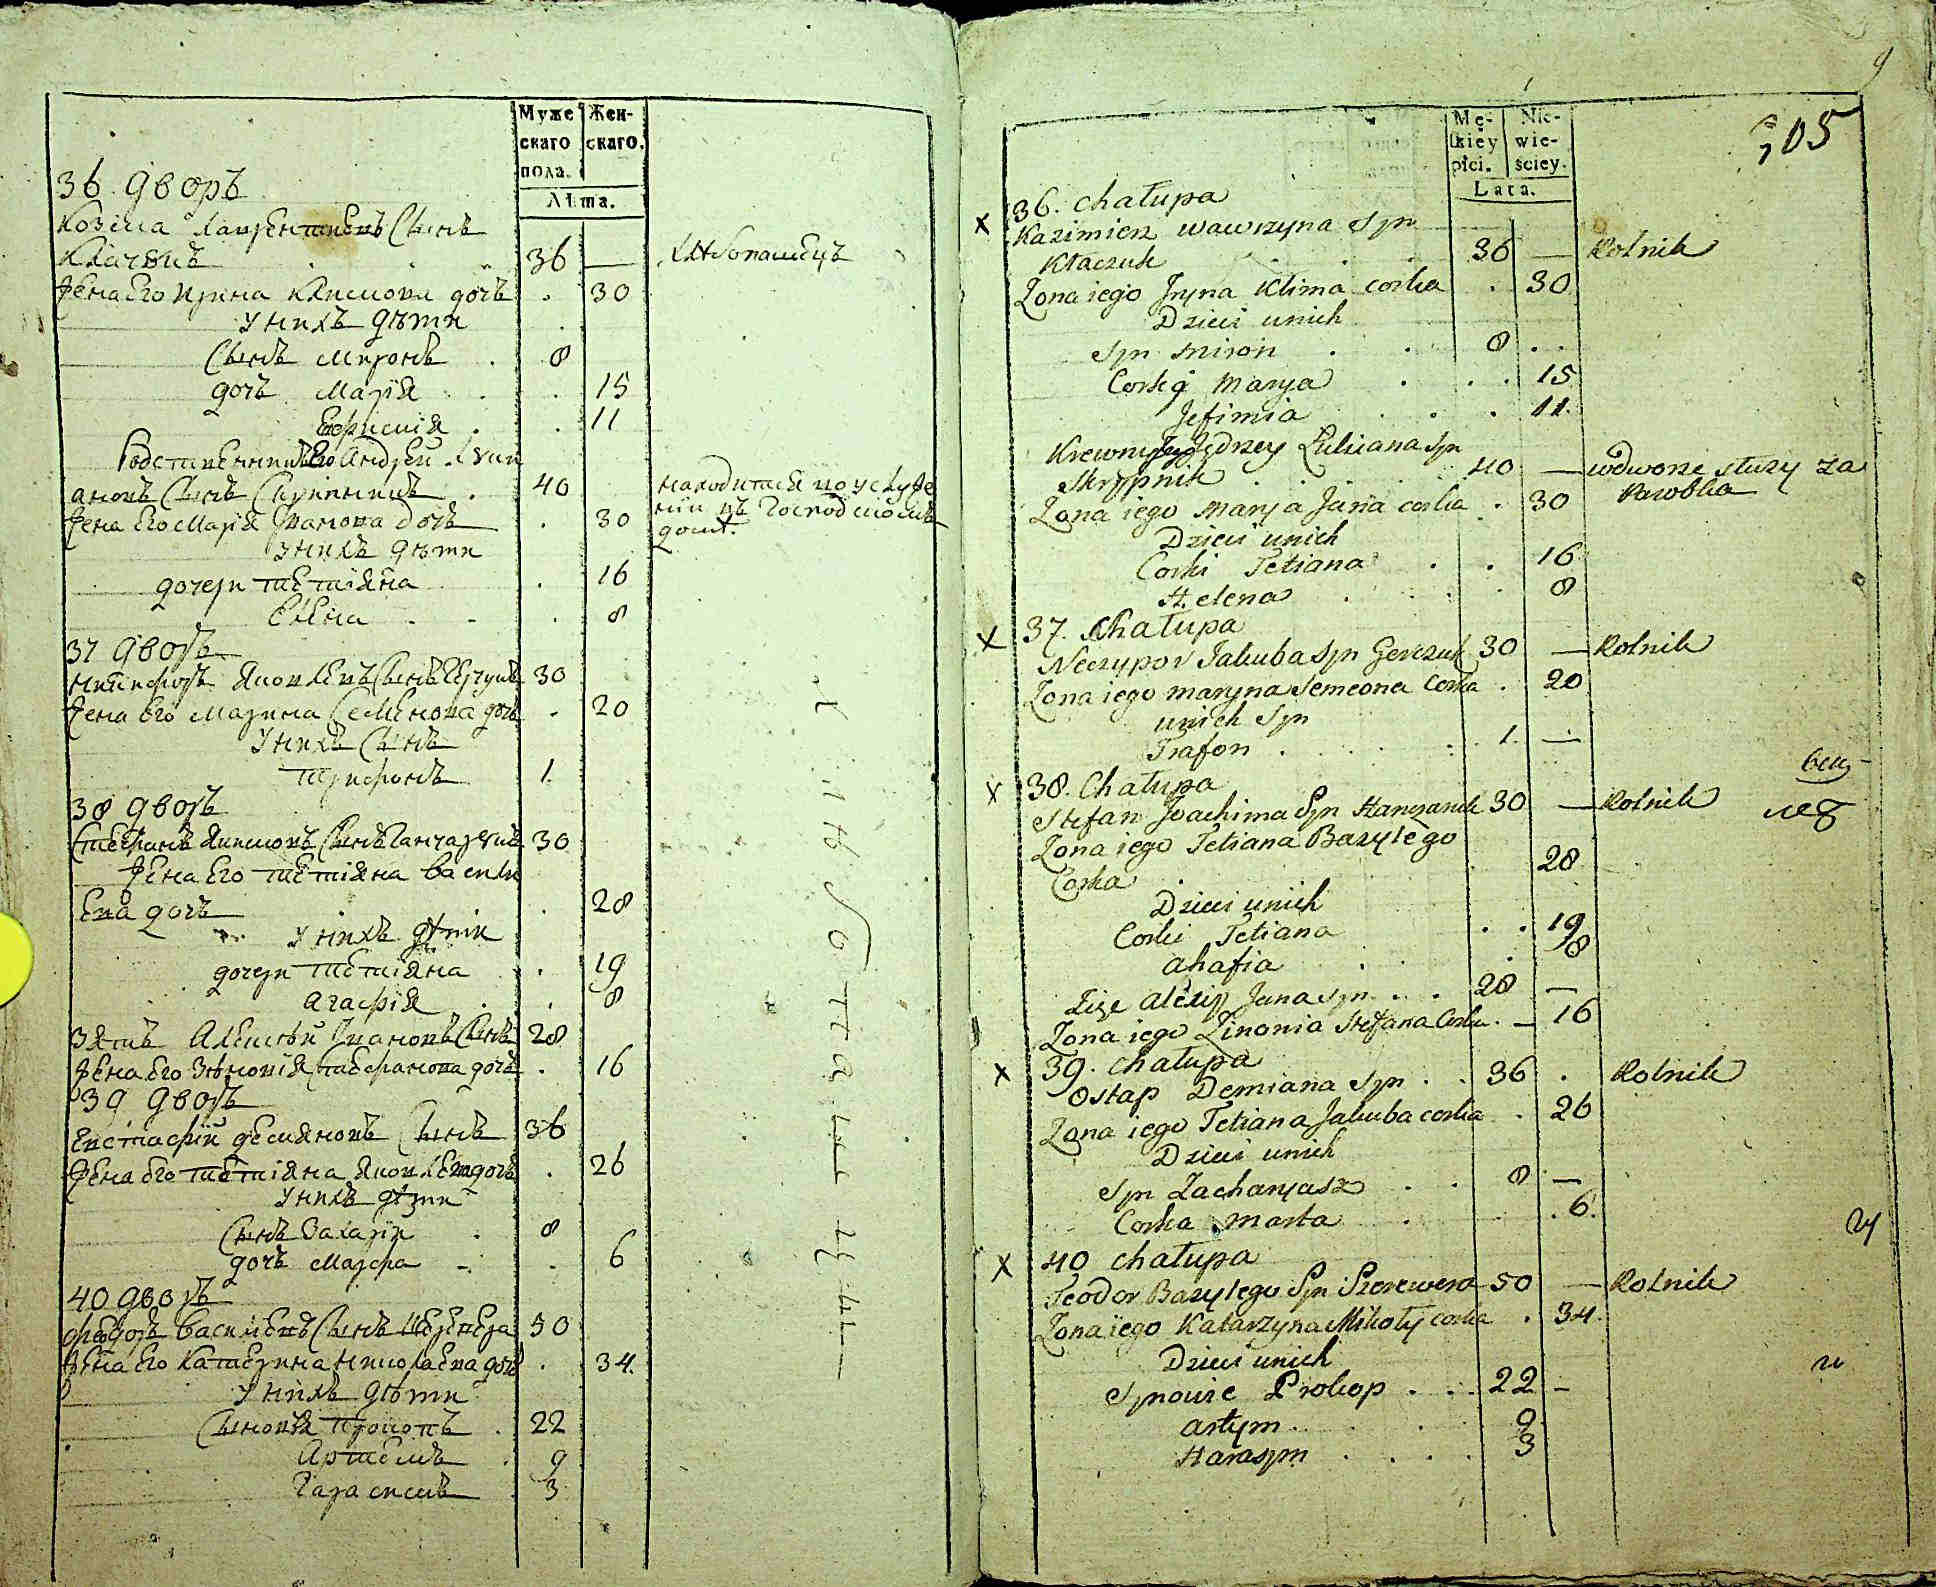 Муже
скаго
пола.
Жен-
скаго.
Лѣта.
36 дворъ
Козма Лаврентиевъ Сынъ
Клачукъ 36 — Хлѣбопашецъ
Жена Его Ирина Климова дочь . 30
У нихъ дѣти
Сынъ Миронъ . 8
дочь Марія . 15
Ефимія . 11
Родственникъ Его Андрей Лукi
ановъ Сынъ Скрипникъ . 40 находится во услуже
Жена Его Марія Иванова дочь . 30 нiи въ Господскомъ
домѣ.
У нихъ дѣти
дочери Тетіяна . 16
Елена . 8
37 дворъ
Никифоръ Яковлевъ Сынъ Герчукъ 30
Жена Его Марина Семенова дочь . 20
У нихъ Сынъ
Трифонъ 1.
38 дворъ
Стефанъ Якимовъ Сынъ Ганчарукъ 30
Жена Его Тетіяна Василь
Ева дочь . 28
У нихъ дѣти
дочери Тетіяна . 19
Агафія . 8
Зять Алексѣй Ивановъ Сынъ 28
Жена Его Зѣновія Стефанова дочь . 16
39 дворъ
Евстафій Демяновъ Сынъ 36
Жена Его Тетіяна Яковлева дочь . 26
У нихъ дѣти
Сынъ Захарій . 8
дочь Марфа . 6
40 дворъ
Феодоръ Василiевъ Сынъ Шеревера 50
Жена Его Катерина Николаева дочь . 34.
У нихъ дѣти
Сыновя Прокопъ . 22
Артемъ . 9
Гарасимъ . 3
9
105
Mę-
zkiey
płci.
Nie-
wie-
ściey.
Lata.
x 36. Chałupa
Kazimierz Wawrzyna Syn
Kłaczuk . . . 36 — Rolnik
Zona iego Jryna Klima corka . 30
Dzieci unich
Syn Miron . . 8 . .
Corki Marya . . . 15
Jefimia . . . 11.
Krewny Jego Jędrzey Lukiana Syn
Skrypnik . . 40 — wdworze służy za
Parobka
Zona iego Marya Jana corka . 30
Dzieci unich
Corki Tetiana . . 16
Helena . . . 8
x 37. Chałupa
Neczypor Jakuba Syn Gerczuk 30 — Rolnik
Zona iego Maryna Semeona Corka . 20
unich Syn
Trafon . . . 1. —
x 38. Chałupa
Stefan Joachima Syn Hanczaruk 30 — Rolnik
Zona iego Tetiana Bazylego
Corka . . 28
Dzieci unich
Corki Tetiana . . 19
Ahafia . . 8
Zięc Alexiy Jana syn . . . 28 —
Zona iego Zinonia Stefana Corka . — 16
x 39. Chałupa
Ostap Demiana Syn . . 36 . Rolnik
Zona iego Tetiana Jakuba corka . 26
Dzieci unich
Syn Zacharyasz . . 8 —
Corka Marta . . 6.
x 40 Chałupa
Teodor Bazylego Syn Szerewera 50 — Rolnik
Zona iego Katarzyna Mikoły corka . 34.
Dzieci unich
Synowie Prokop . . . 22 —
Artym . . . 9
Harasym . . . . 3